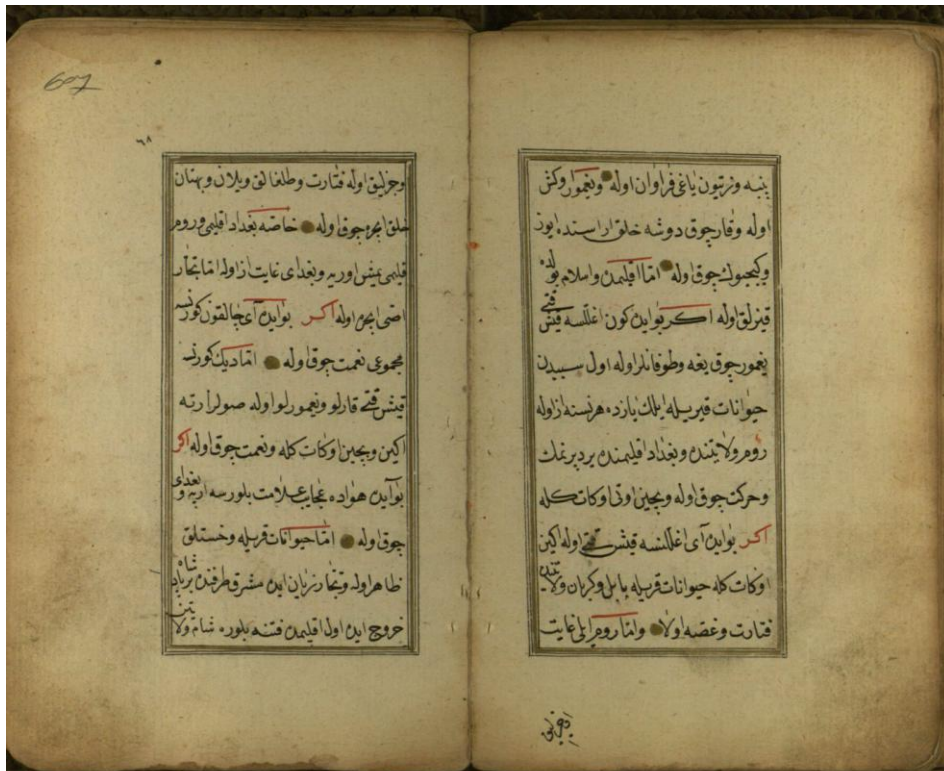 پنبه و زرتیون یاغی فراوان اوله ویغمور وکش
اوله وقار چوق دوشه خلق اراسنده ایوز
وکیجیوك چوق اوله امّا اقلیمدن واسلام بولده
قیزلق اوله اکر بوایده کون اغللسه قیش قتی
یغمور چوق یغه وطوفانلر اوله اول سببدن
حیوانات قیریله ایلك یازده هر نسنه ازاوله
روم ولایتنده وبغداد اقلیمنده بردبرنمك
وحرکت چوق اوله وبچین اوتی اوکات کله
اکر بوایده آی اغللنسه قیش قتی اوله اکین
اوکات کله حیوانات قریله بابل وکرمان ولایتنده
فتارت وغصه اولا وامّا روم ایلی غایت
٦٨
وجزلیق اوله فتارت وطلغالق ویلان وبهتان
خلق ایچره چوق اوله خاصه بغداد اقلیمی وروم
قلیمی یمش اوریه وبغدای غایت ازاوله امّا تجار
اصی ایچره اوله اکر بوایده آی چالقون کورنسه
مجموعی نعمت چوق اوله امّا دیك کورنسه
قیش قتی قارلو ویغمورلو اوله صولر ارته
اکین وبچین اوکات کله ونعمت چوق اوله اکر
بوآیده هواده عجایب علامت بلورسه اریه وبغدای
چوق اوله امّا حیوانات قریله وخستلق
ظاهر اوله وتجار زیان ایده مشرق طرفنده بر پادشاه
خروج ایده اوله اقلیمده فتنه بلوره شام ولایتن
607